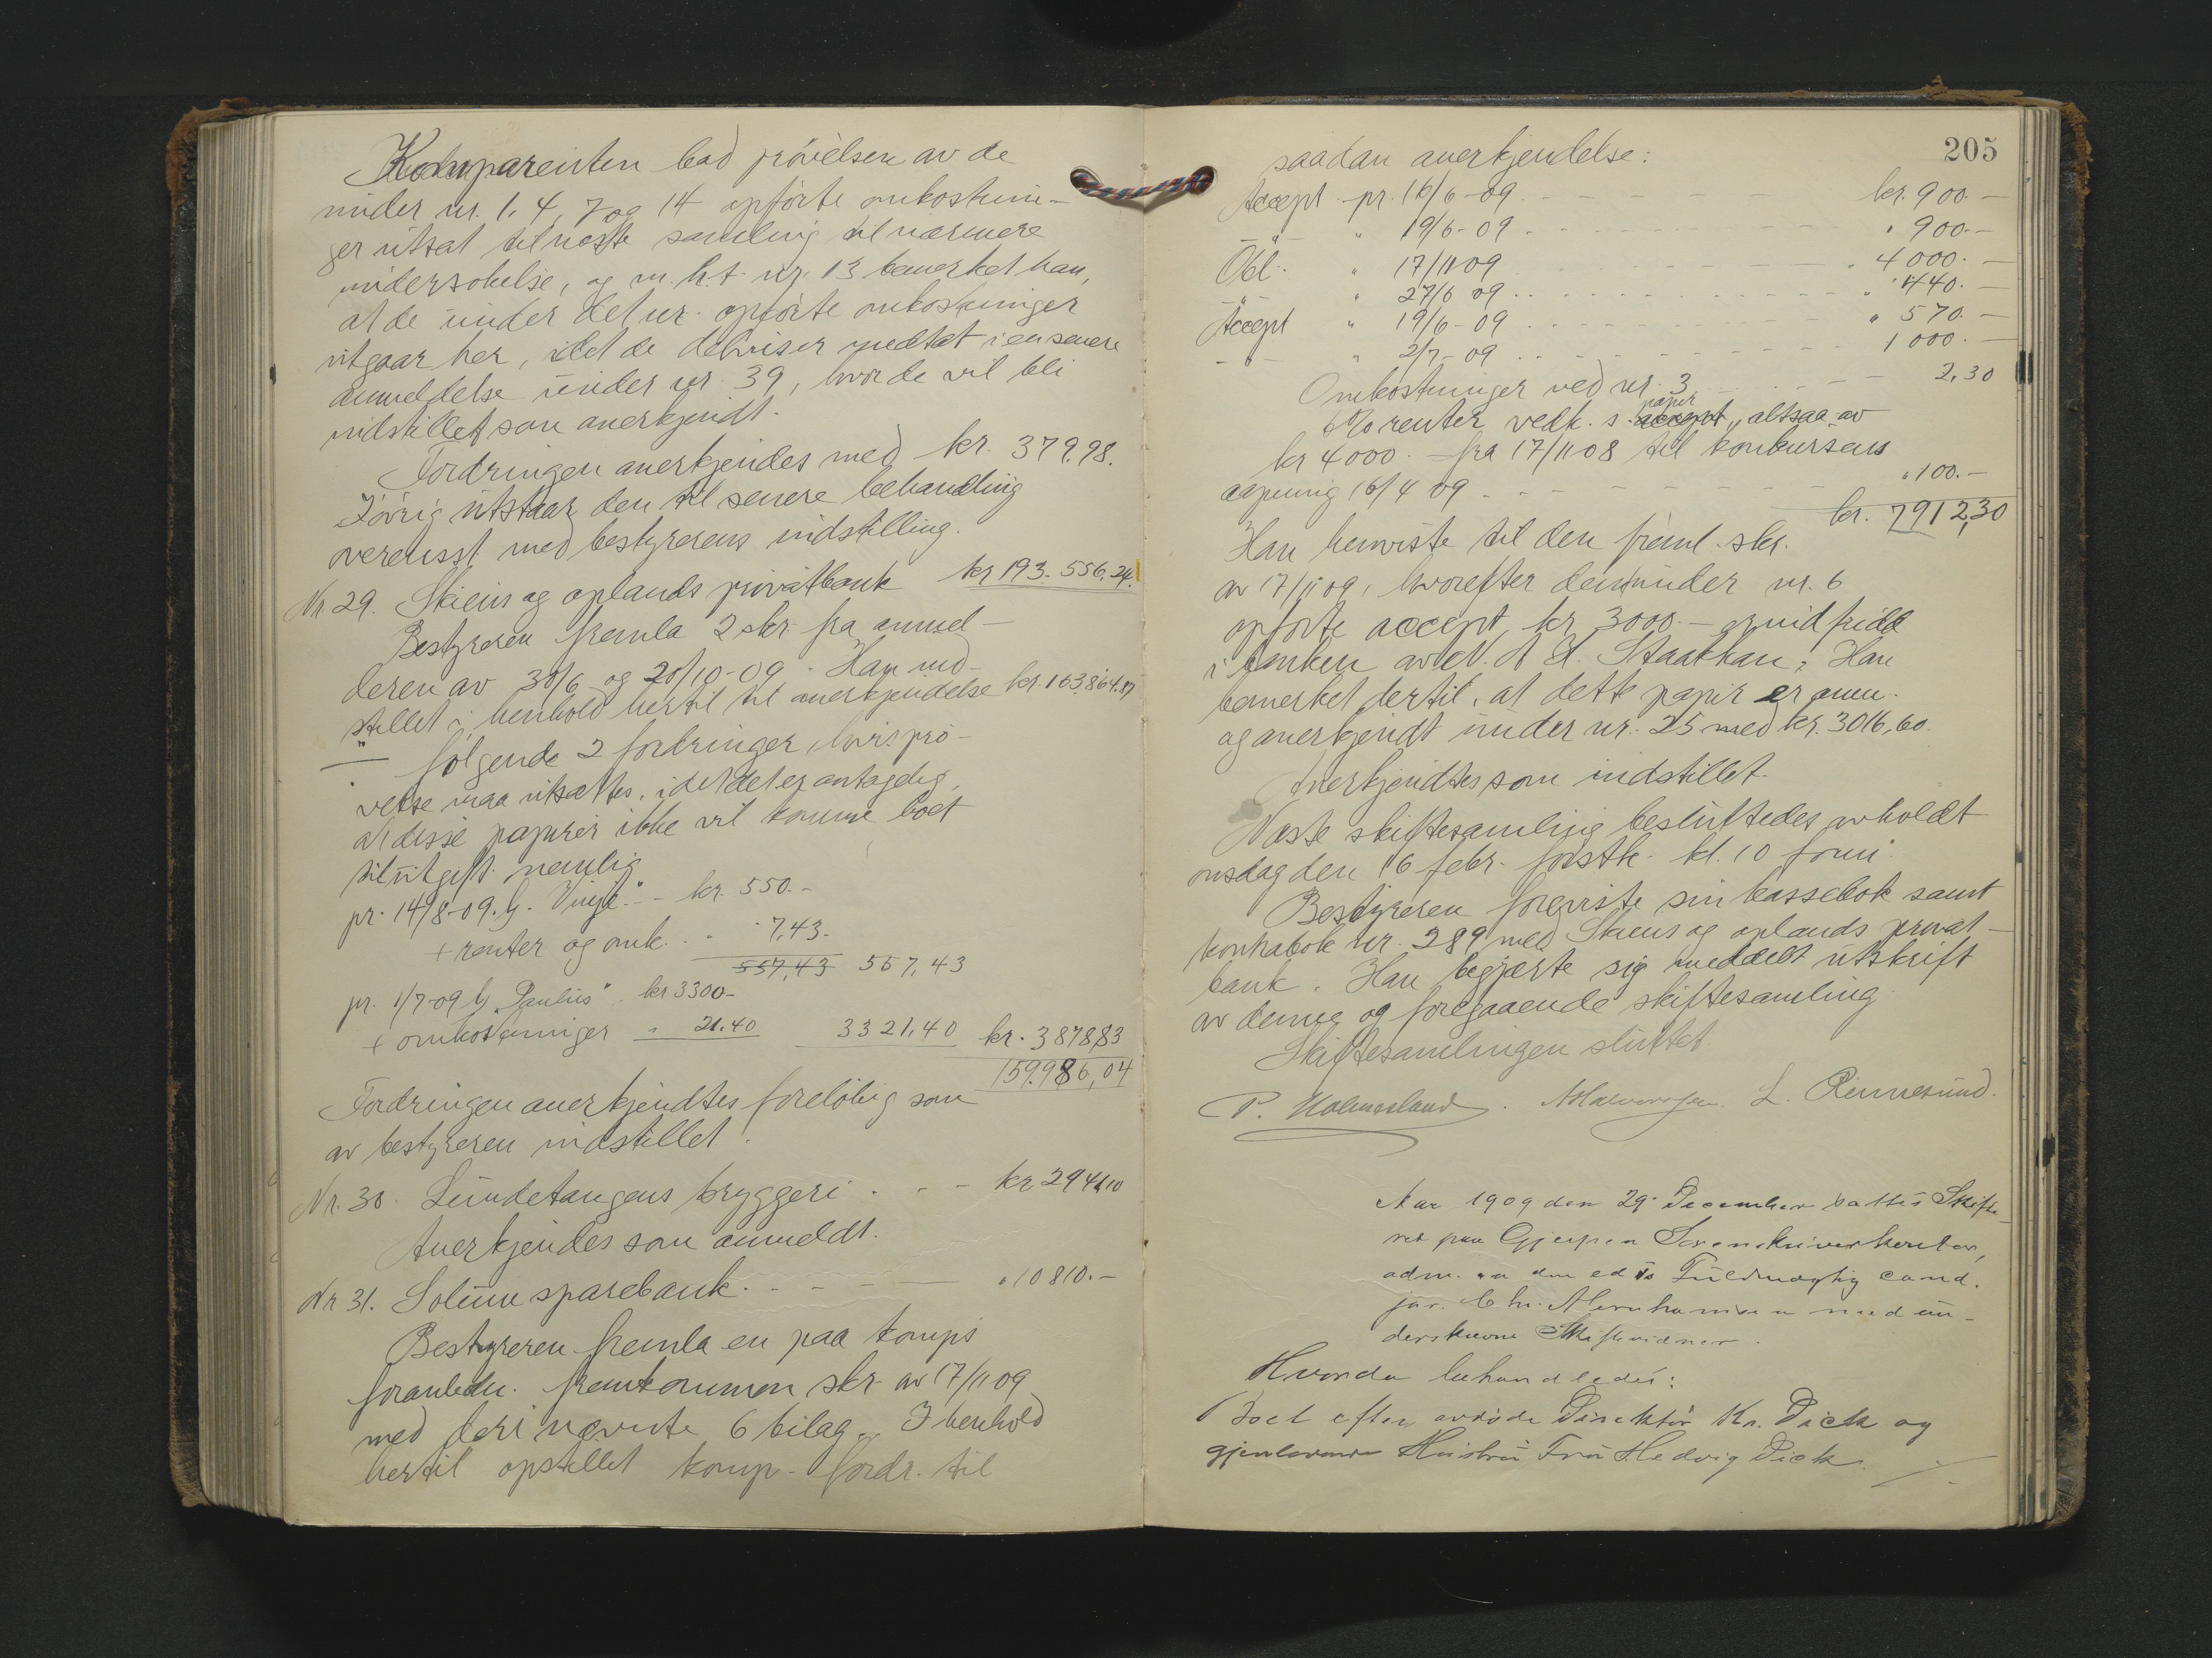 Komparenten bad prövelsen av de
under nr. 1, 4, 7 og 14 opförte omkostnin-
ger utsat til næste samling til nærmere
undersökelse, og m.h.t. nr. 13 bemerket han,
at de under det nr. opförte omkostninger
utgaar her, idet de delvis er medtat i en senere
anmeldelse under nr. 39, hvor de vil bli
indstillet som anerkjendt.
Fordringen anerkjendes med kr. 379.98.
Iövrig utstaar den til senere behandling
overensst. med bestyrerens indstilling.
Nr. 29. Skiens og oplands privatbank kr 193.556.24.
Bestyreren fremla 2 skr. fra anmel-
deren av 30/6 og 20/10-09. Han ind-
stillet i henhold hertil til anerkjendelse kr. 163,864.87
÷ fölgende 2 fordringer, hvis prö-
velse maa utsættes, idet det er antagelig,
at disse papirer ikke vil komme boet
til utgift nemlig
pr. 14/8-09. Vinje" - kr. 550.-
+ renter og omk. . . " 7,43.
557,43 557,43
pr. 1/7-09 "Paulus". kr 3300-
+ omkostninger " 21.40 3321,40 kr. 3878,83
159.986,04
Fordringen anerkjendtes forelöbig som
av bestyreren indstillet.
Nr. 30. Lundetangens bryggeri . - - kr 2941,10
Anerkjendes som anmeldt.
Nr 31. Solum sparebank. - - - " 10810.-
Bestyreren fremla en paa komps
foranledn. fremkommen skr. av 17/11 09
med deri nævnte 6 bilag. I henhold
hertil opstillet komp. fordr. til
205
saadan anerkjendelse:
Accept pr. 16/6-09 - - - kr. 900.-
-"- " 19/6-09 - - - " 900.-
Obl. " 17/11 09 - - - " 4000.-
-"- " 27/6 09 - - - " 440.-
Accept " 19/6-09 - - - " 570.-
-"- " 2/7-09 - - - 1000.-
Omkostninger ved nr. 3 - - - 2,30
papir
6% renter vedk. s. accept, altsaa av
kr 4000.- fra 17/11 08 til konkursens
aapning 16/4 09 - - - " 100.-
kr. 7912,30
Han henviste til den freml. skr.
av 17/11 09, hvorefter den under nr. 6
opförte accept, kr 3000.- er indfridd
i banken av N. A. Staathan. Han
bemerket dertil, at dette papir er anm.
og anerkjendt under nr. 25 med kr. 3016,60.
Anerkjendtes som indstillet.
Næste skiftesamling besluttedes avholdt
onsdag den 16 febr. förstk. kl. 10 form.
Bestyreren foreviste sin kassebok samt
kontrabok nr. 289 med Skiens og oplands privat-
bank. Han begjærte sig meddelt utskrift
av denne og foregaaende skiftesamling.
Skiftesamlingen sluttet.
P. Holmesland. AHalvorsen. L. Rinnesund.
Aar 1909 den 29. December sattes Skifte-
ret paa Gjerpen Sorenskriverkontor,
adm. av den eds. Fuldmægtig cand.
jur. Chr. Abrahamsen med un-
derskrevne Skiftevidner.
Hvorda behandledes:
Boet efter avdöde Direktör Kr. Dick og
gjenlevende Hustru Fru Hedvig Dick.